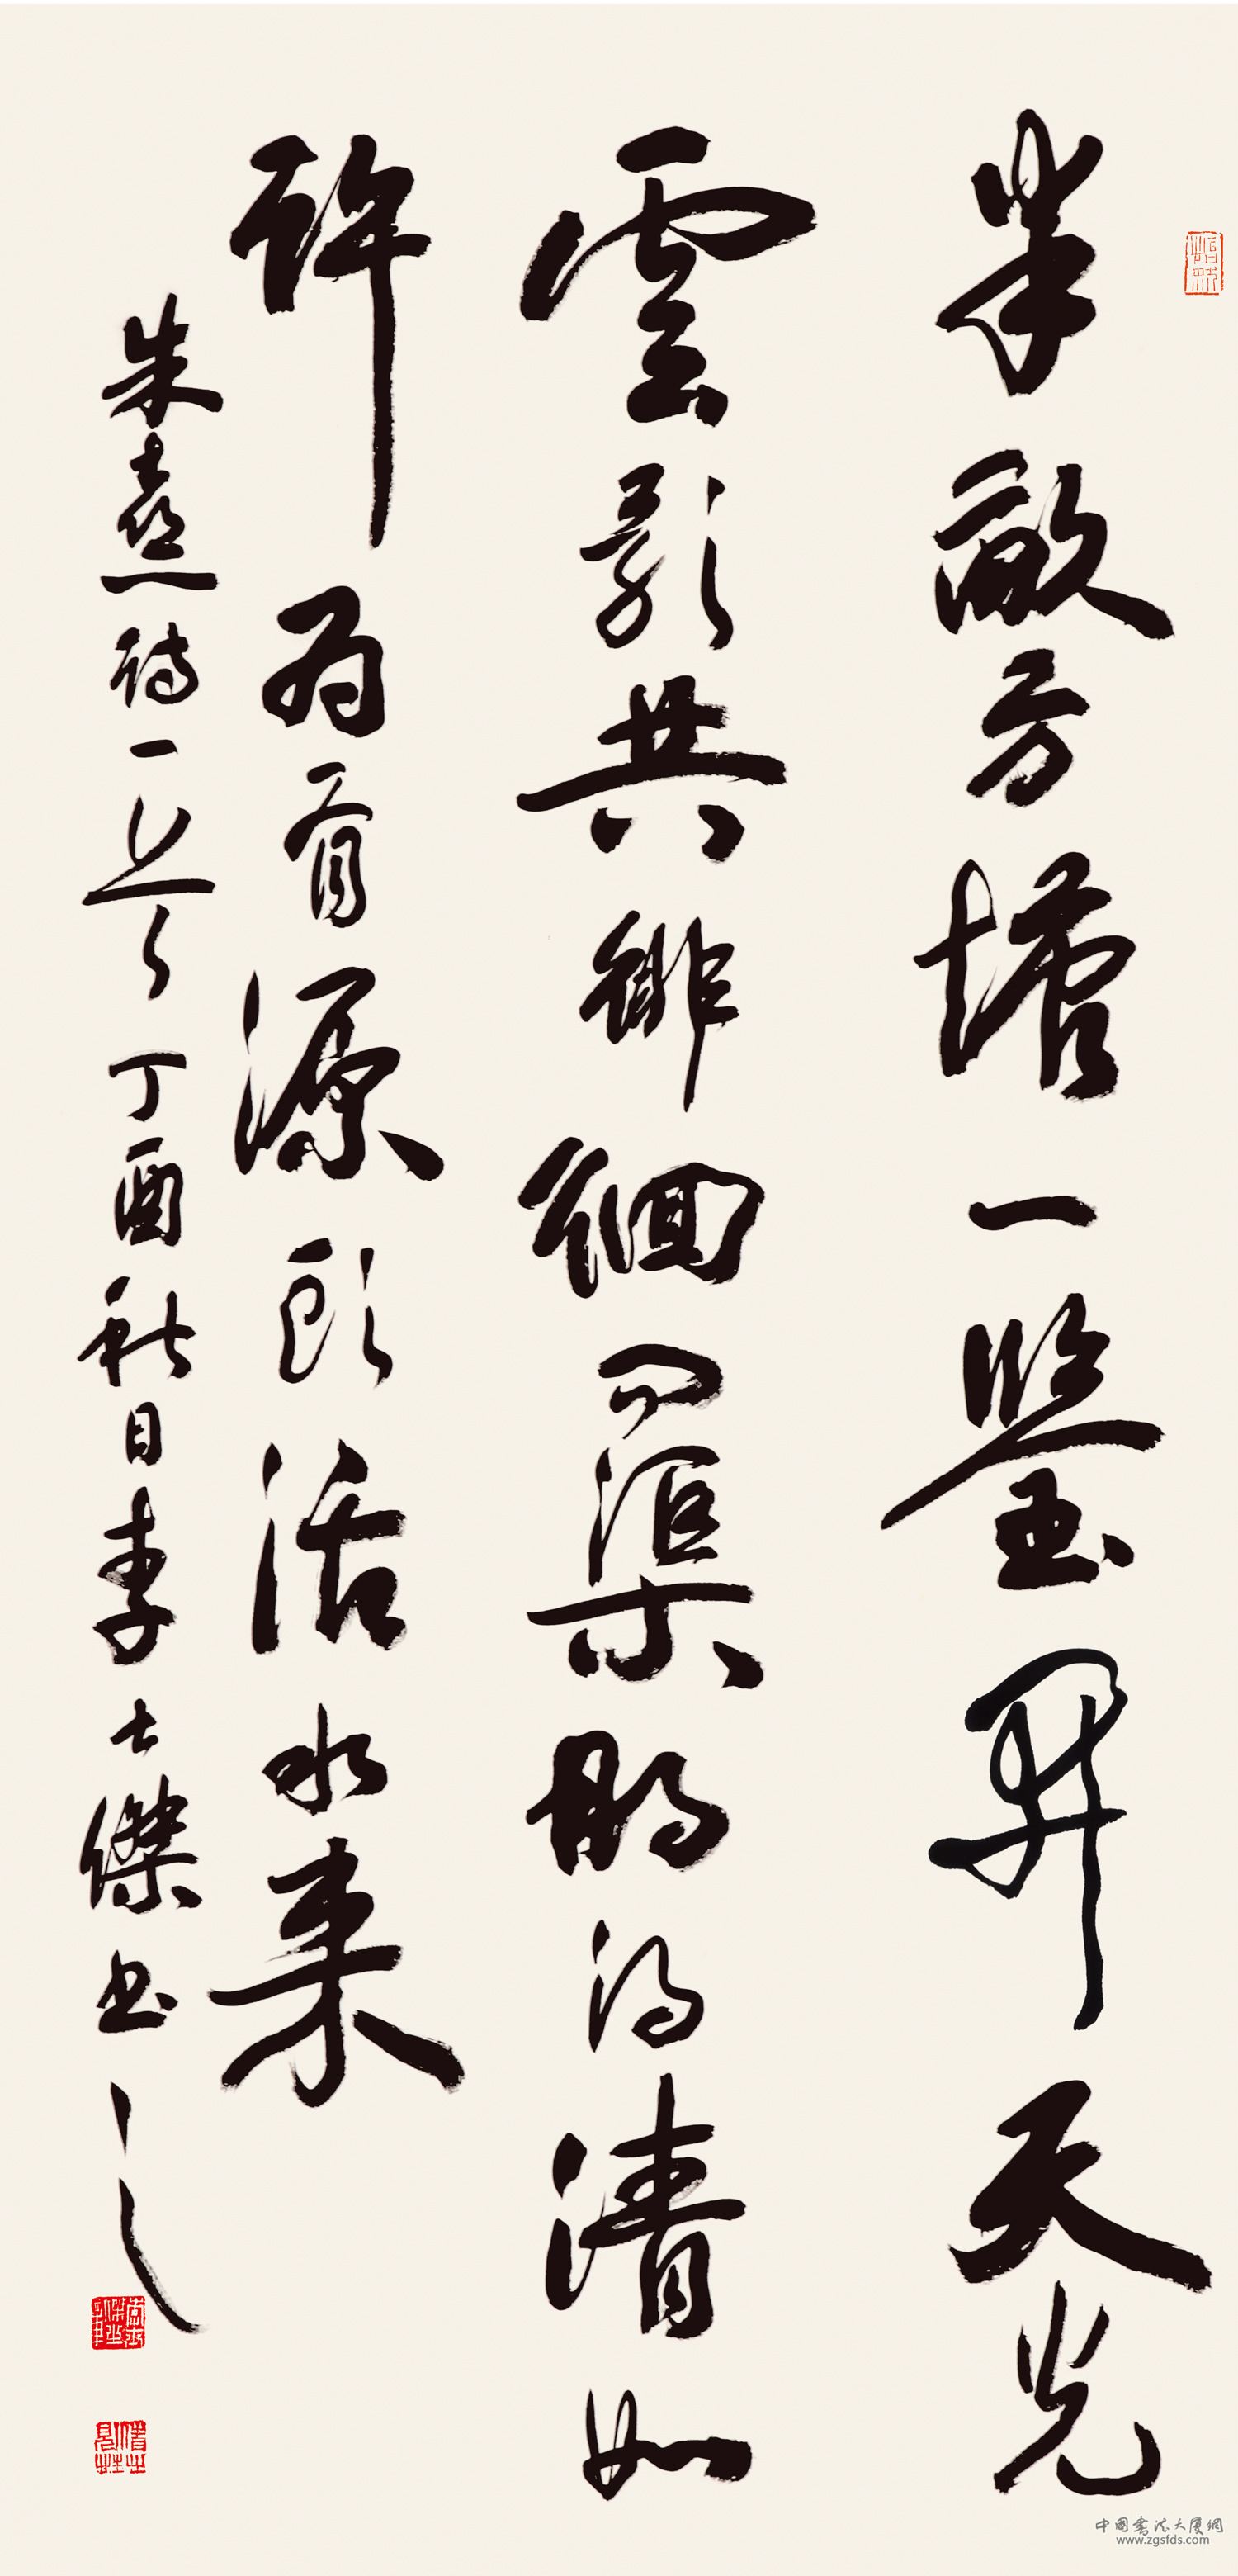 半畝方塘一鑒開天光
雲影共徘徊問渠那得清如
許為有源頭活水来
朱熹詩一首丁酉秋日李士傑书之
中國書法大廈網
www.zgsfds.com